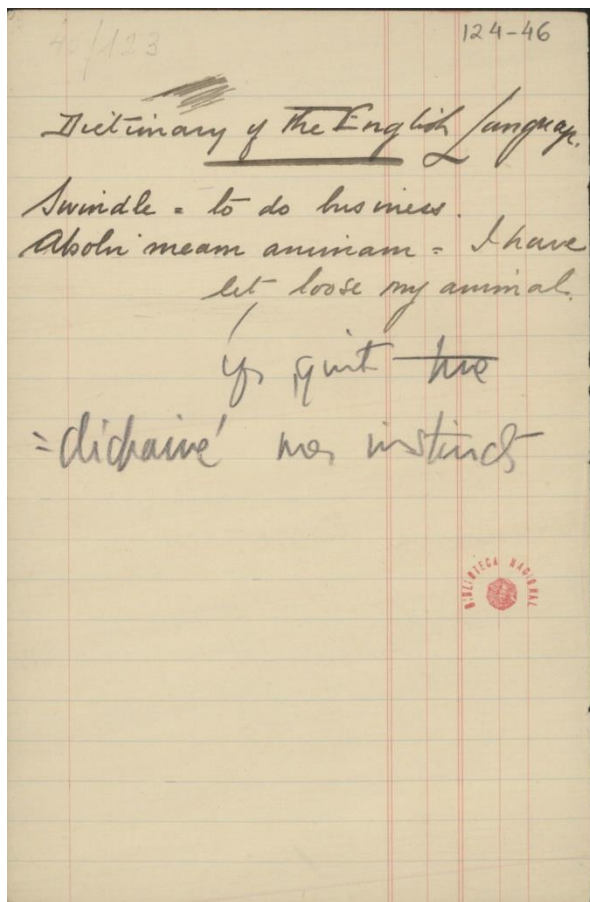 40/123
124-46
Dictionary of the English Language.
Swindle = to do business.
Absolvi meam animam = I have
let loose my animal.
quit
= dichainé mes instincts
BIBLIOTECA NACIONAL